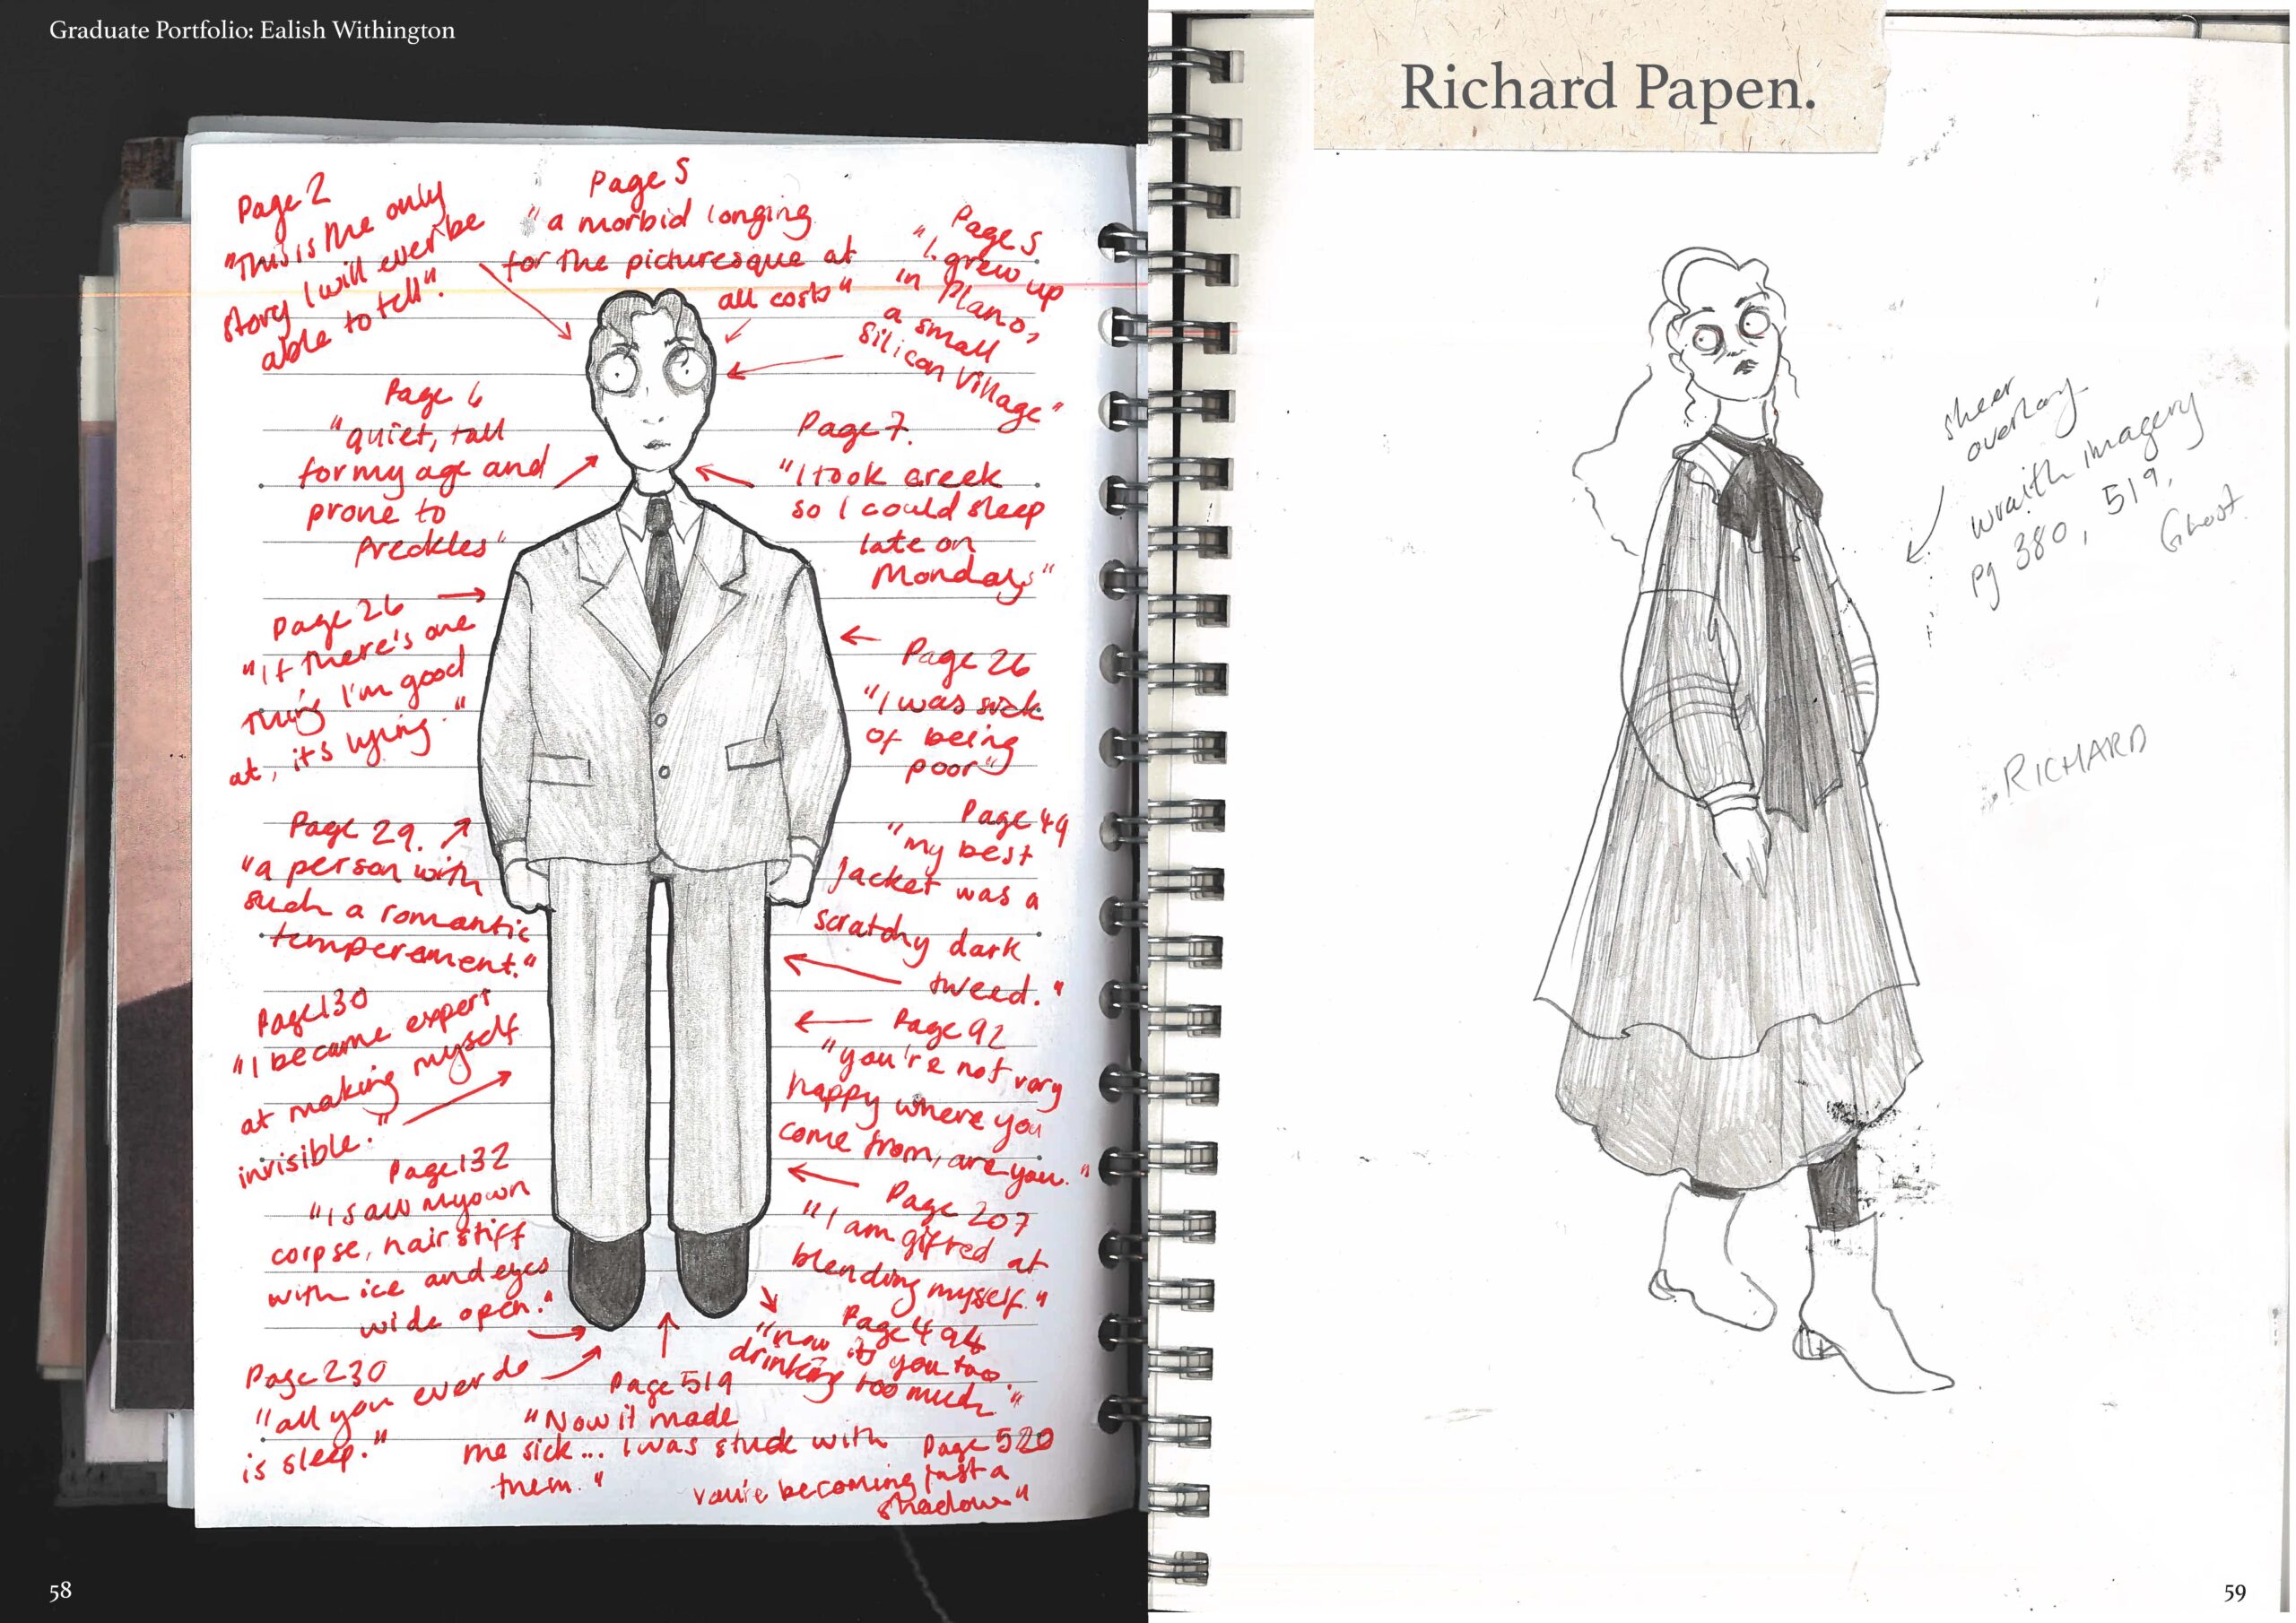 Graduate Portfolio: Ealish Withington
Page 2
"This is the only
story I will ever be
able to tell".
Page 5
"a morbid longing
for the picturesque at
all costs"
Page 5
"I grew up
in Plano,
a small
silicon village"
Page 6
"quiet, tall
for my age and
prone to
freckles"
Page 7.
"I took Greek
so I could sleep
late on
Mondays"
Page 26
"If there's one
thing I'm good
at, it's lying."
Page 26
"I was sick
of being
poor"
Page 29.
"a person with
such a romantic
temperament."
Page 49
"my best
jacket was a
scratchy dark
tweed."
Page 130
"I became expert
at making myself
invisible."
Page 92
"you're not very
happy where you
come from, are you."
Page 132
"I saw my own
corpse, hair stiff
with ice and eyes
wide open."
Page 207
"I am gifted at
blending myself."
Page 230
"all you ever do
is sleep."
Page 494
"now it's you too.
drinking too much"
Page 519
"Now it made
me sick... I was stuck with
them."
Page 520
You're becoming just a
shadow"
58
Richard Papen.
sheer
overlay
wraith imagery
pg 380, 519,
Ghost.
RICHARD
59